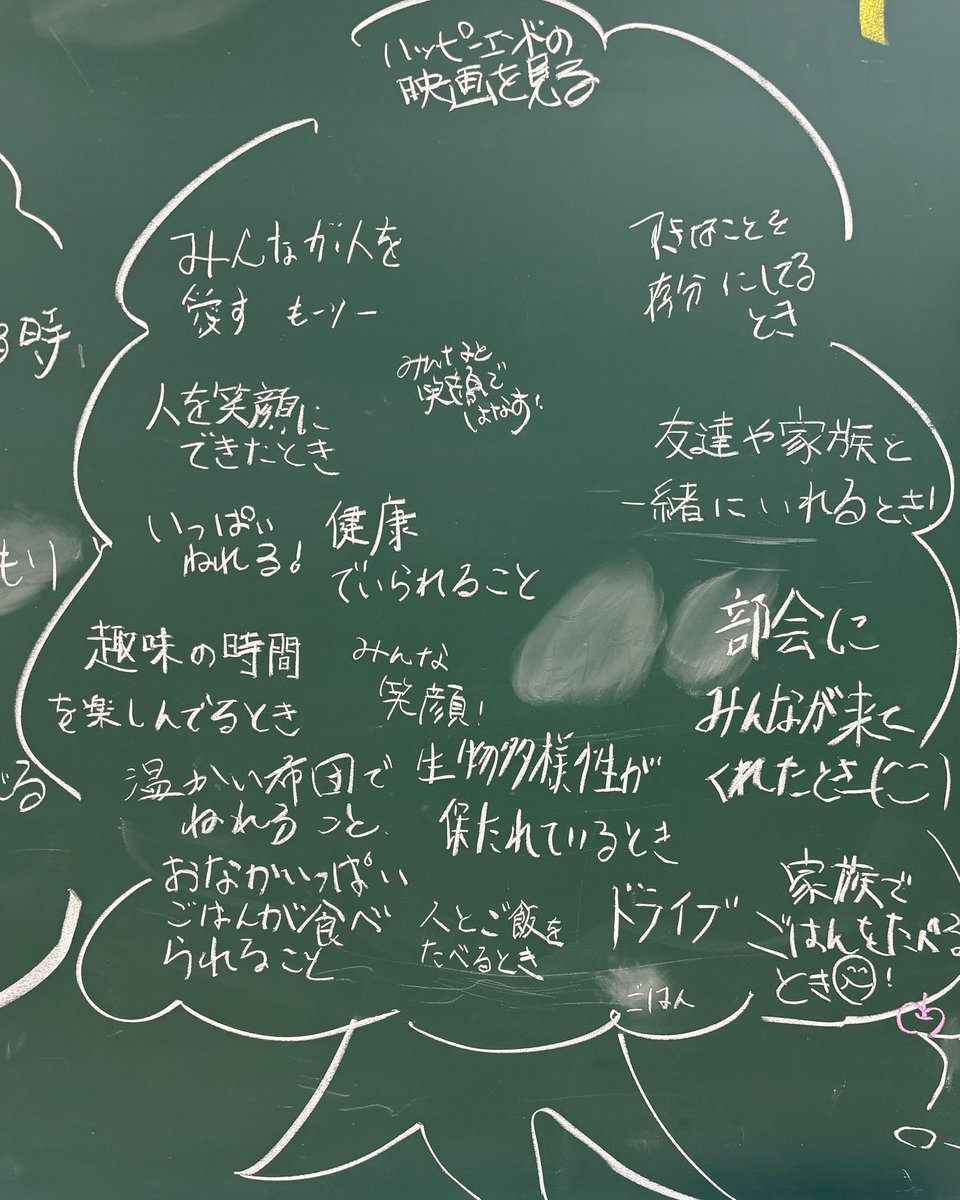 ハッピーエンドの
映画を見る
みんなが人を
愛す もーりー
すきなことを
存分にしてる
とき
る時
みんなと
笑顔で
はなす!
人を笑顔に
できたとき
友達や家族と
一緒にいれるとき!
いっぱい
ねれる!
健康
でいられること
もり
部会に
みんなが来て
くれたとき
趣味の時間
を楽しんでるとき
みんな
笑顔!
温かい布団で
ねれること
生物多様性が
保たれているとき
べる
おなかいっぱい
ごはんが食べ
られること
人とご飯を
たべるとき
ドライブ
家族で
ごはんをたべる
とき!
ごはん